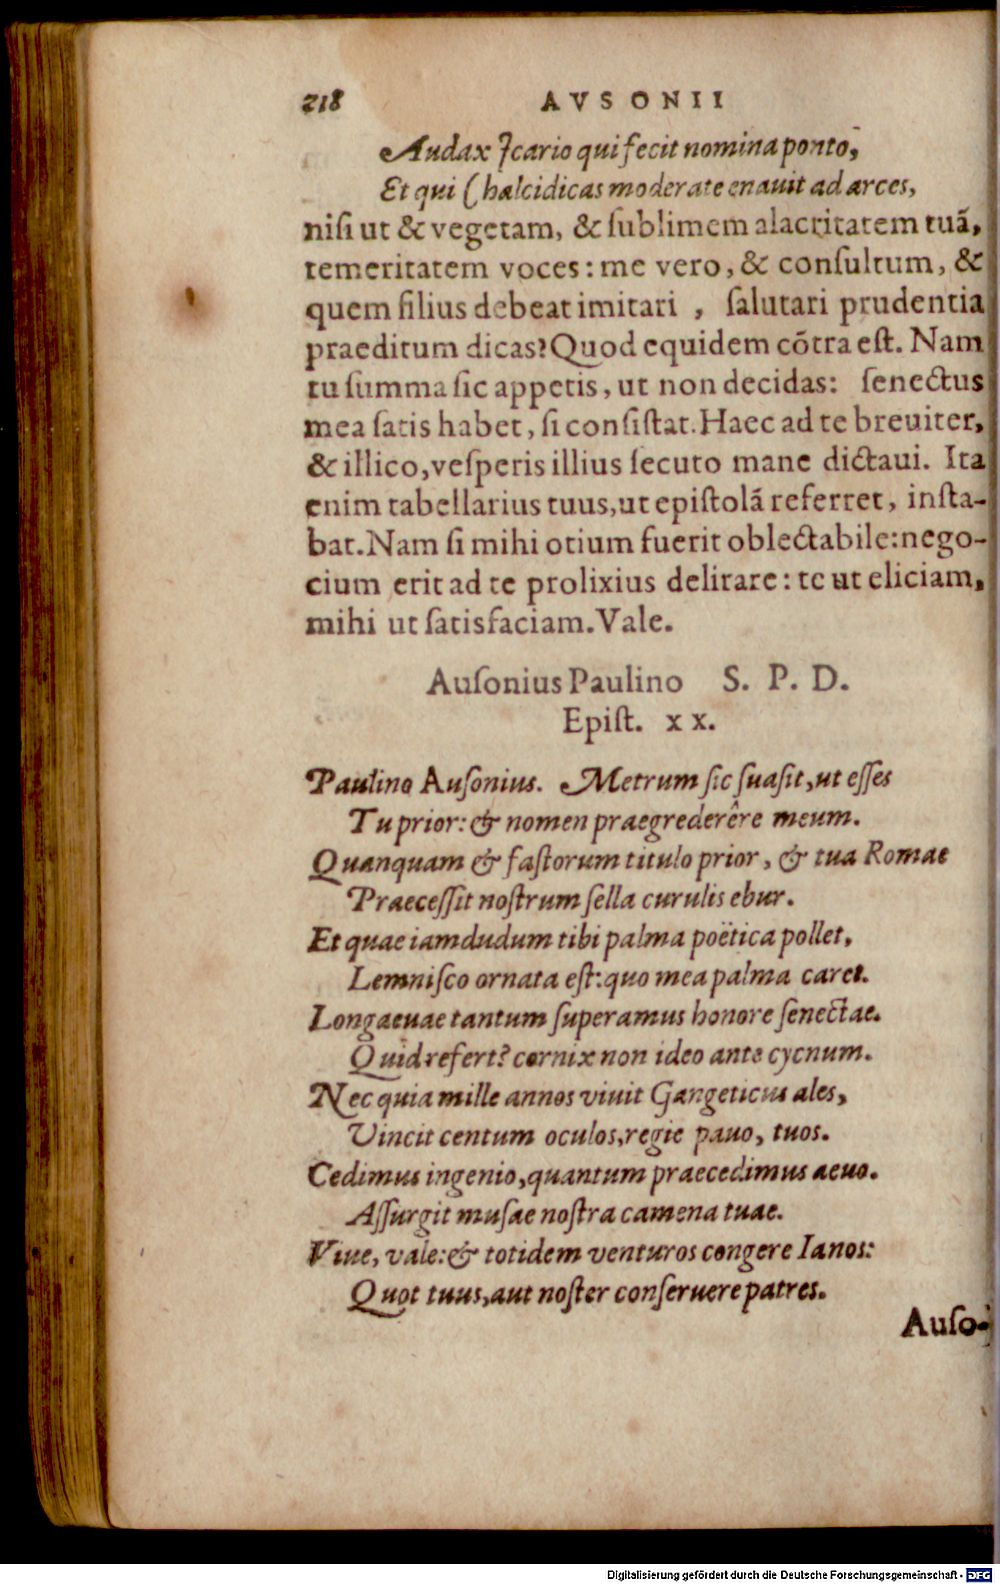 218 AVSONII
Audax Icario qui fecit nomina ponto,
Et qui Chalcidicas moderate enauit ad arces,
nisi ut & vegetam, & sublimem alacritatem tuã,
temeritatem voces: me vero, & consultum, &
quem filius debeat imitari , salutari prudentia
praeditum dicas? Quod equidem cõtra est. Nam
tu summa sic appetis, ut non decidas: senectus
mea satis habet, si consistat. Haec ad te breuiter,
& illico, vesperis illius secuto mane dictaui. Ita
enim tabellarius tuus, ut epistolã referret, insta-
bat. Nam si mihi otium fuerit oblectabile: nego-
cium erit ad te prolixius delirare: te ut eliciam,
mihi ut satisfaciam. Vale.
Ausonius Paulino S. P. D.
Epist. xx.
Paulino Ausonius. Metrum sic suasit, ut esses
Tu prior: & nomen praegrederêre meum.
Quanquam & fastorum titulo prior, & tua Romae
Praecessit nostrum sella curulis ebur.
Et quae iamdudum tibi palma poëtica pollet,
Lemnisco ornata est: quo mea palma caret.
Longaeuae tantum superamus honore senectae.
Quid refert? cornix non ideo ante cycnum.
Nec quia mille annos viuit Gangeticus ales,
Vincit centum oculos, regie pauo, tuos.
Cedimus ingenio, quantum praecedimus aeuo.
Assurgit musae nostra camena tuae.
Viue, vale: & totidem venturos congere Ianos:
Quot tuus, aut noster conseruere patres.
Auso-
Digitalisierung gefördert durch die Deutsche Forschungsgemeinschaft - DFG